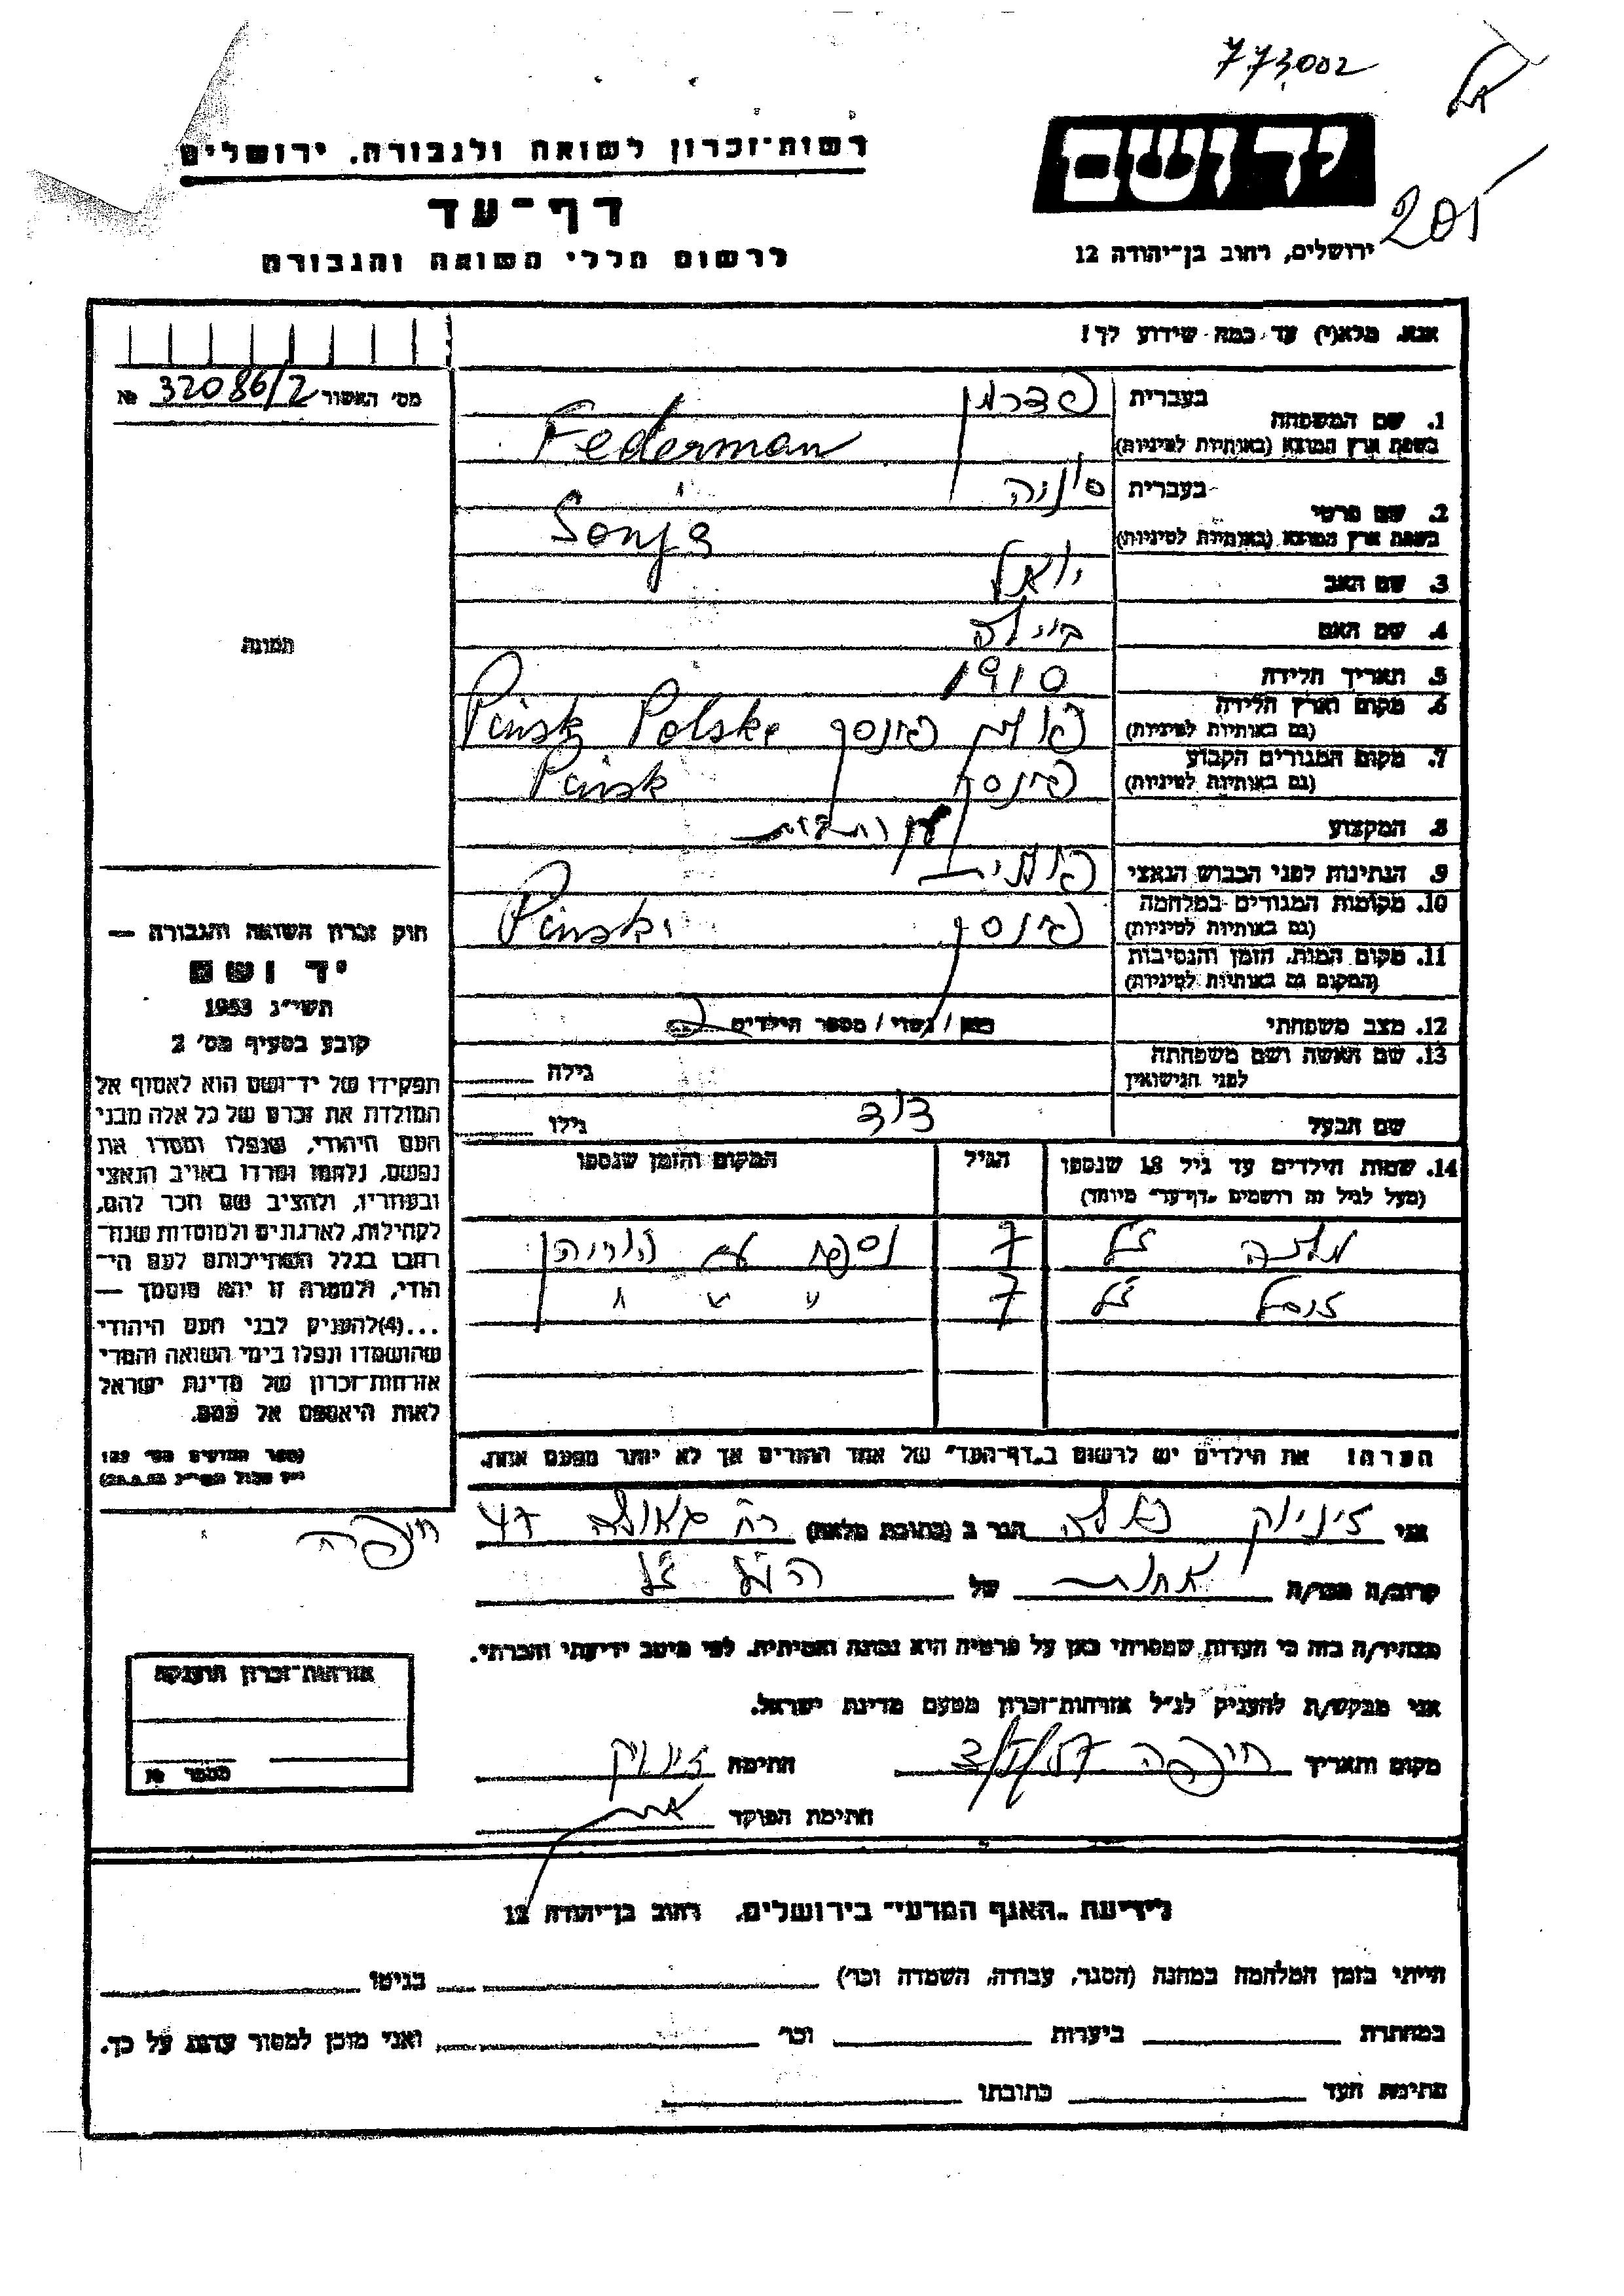 773002
201
רשות-זכרון לשואה ולגבורה. ירושלים
דף-עד
לרשום חללי השואה והגבורה
יד ושם
ירושלים, רחוב בן-יהודה 12
אנא, מלא(י) עד כמה שידוע לך!
מס' האשור 32086/2 №
תמונה
1. שם המשפחה
בעברית פדרמן
בשפת ארץ המוצא (באותיות לטיניות) Federman
2. שם פרטי
בעברית סוניה
בשפת ארץ המוצא (באותיות לטיניות) Sonja
3. שם האב יואל
4. שם האם ביילה
5. תאריך הלידה 1910
6. מקום וארץ הלידה
(גם באותיות לטיניות) פולין פינסק Pinsk Polska
7. מקום המגורים הקבוע
(גם באותיות לטיניות) פינסק Pinsk
8. המקצוע
9. הנתינות לפני הכבוש הנאצי פולנית
10. מקומות המגורים במלחמה
(גם באותיות לטיניות) פינסק Pinsk
11. מקום המות, הזמן והנסיבות
(המקום גם באותיות לטיניות)
12. מצב משפחתי / נשוי / מספר הילדים 2
13. שם האשה ושם משפחתה
לפני הנישואין
גילה
שם הבעל דוד גילו
14. שמות הילדים עד גיל 18 שנספו הגיל המקום והזמן שנספו
(מעל לגיל זה רושמים "דף-עד" מיוחד)
ז"ל 7 נספה עם הוריהן
ז"ל 7 " " "
הערה! את הילדים יש לרשום ב"דף-העד" של אחד ההורים אך לא יותר מפעם אחת.
חוק זכרון השואה והגבורה —
יד ושם
תשי"ג 1953
קובע בסעיף מס' 2
תפקידו של יד-ושם הוא לאסוף אל
המולדת את זכרם של כל אלה מבני
העם היהודי, שנפלו ומסרו את
נפשם, נלחמו ומרדו באויב הנאצי
ובעוזריו, ולהציב שם וזכר להם,
לקהילות, לארגונים ולמוסדות שנח-
רבו בגלל השתייכותם לעם הי-
הודי, ולמטרה זו יהא מוסמך —
...(4)להעניק לבני העם היהודי
שהושמדו ונפלו בימי השואה והמרי
אזרחות-זכרון של מדינת ישראל
לאות היאספם אל עמם.
(ספר החוקים מס' 132
אני זיניוק הגר ב (כתובת מלאה) רח גאולה 47
חיפה
קרוב/ה מכר/ה אחות של הנ"ל ז"ל
מצהיר/ה בזה כי העדות שמסרתי כאן על פרטיה היא נכונה ואמיתית. לפי מיטב ידיעתי והכרתי.
אני מבקש/ת להעניק לנ"ל אזרחות-זכרון מטעם מדינת ישראל.
מקום ותאריך חיפה חתימה זיניוק
חתימת הפוקד
אזרחות-זכרון הוענקה
מספר №
לידיעת "האגף המדעי" בירושלים. רחוב בן-יהודה 12
הייתי בזמן המלחמה במחנה (הסגר, עבודה, השמדה וכו') בגיטו
במחתרת ביערות וכו' ואני מוכן למסור עדות על כך.
חתימת העד כתובתו